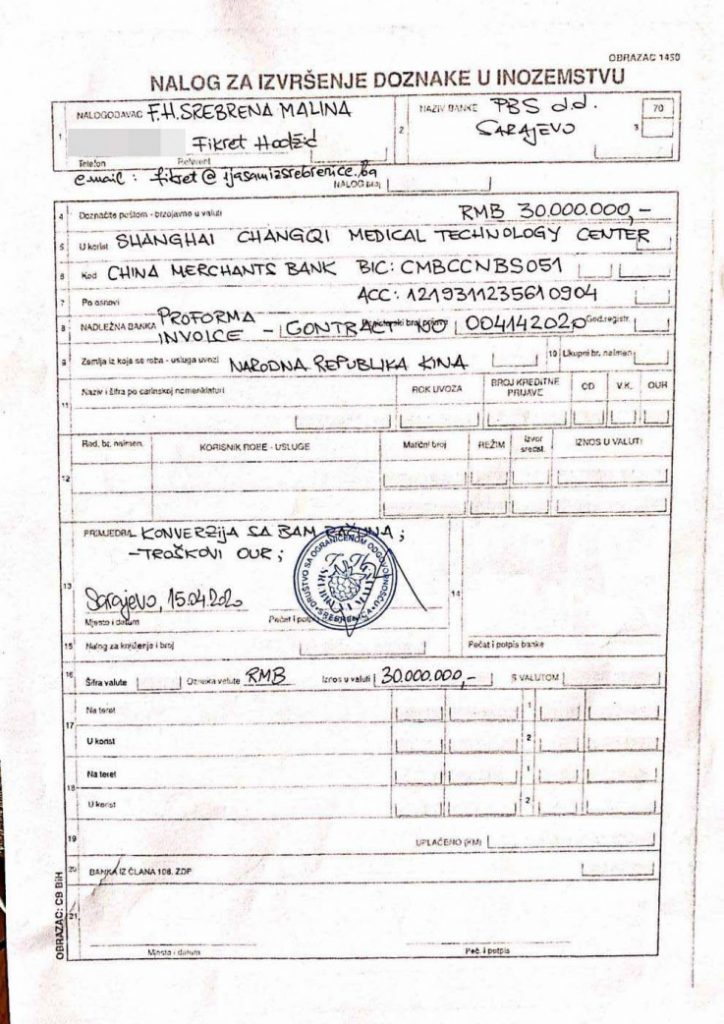 OBRAZAC 1450
NALOG ZA IZVRŠENJE DOZNAKE U INOZEMSTVU
1 NALOGODAVAC F.H. SREBRENA MALINA
Fikret Hodžić
Telefon Referent
email: fikret@ijasamizsrebrenice.ba
2 NAZIV BANKE PBS d.d.
SARAJEVO
70
3
NALOG broj
4 Doznačite poštom - brzojavno u valuti RMB 30.000.000,-
5 U korist SHANGHAI CHANGQI MEDICAL TECHNOLOGY CENTER
6 Kod CHINA MERCHANTS BANK BIC: CMBCCNBS051
7 Po osnovi ACC: 1219311235610904
8 NADLEŽNA BANKA PROFORMA
INVOICE - CONTRACT NO 004142020 God. registr.
9 Zemlja iz koje se roba - usluga uvozi NARODNA REPUBLIKA KINA 10 Ukupni br. naimen.
11 Naziv i šifra po carinskoj nomenklaturi ROK UVOZA BROJ KREDITNE PRIJAVE OD V.K. OUR
12 Red. br. naimen. KORISNIK ROBE - USLUGE Matični broj REŽIM Izvor sredst. IZNOS U VALUTI
PRIMJEDBA KONVERZIJA SA BAM RAČUNA;
-TROŠKOVI OUR;
DRUŠTVO SA OGRANIČENOM ODGOVORNOŠĆU
SREBRENICA
13 Sarajevo, 15.04.2020
Mjesto i datum Pečat i potpis
14
15 Nalog za knjiženje i broj Pečat i potpis banke
16 Šifra valute Oznaka valute RMB Iznos u valuti 30.000.000,- S VALUTOM
17 Na teret 1
U korist 2
18 Na teret 1
U korist 2
19 UPLAĆENO (KM)
20 BANKA IZ ČLANA 108. ZDP
21
Mjesto - datum Peč. i potpis
OBRAZAC: CB BiH